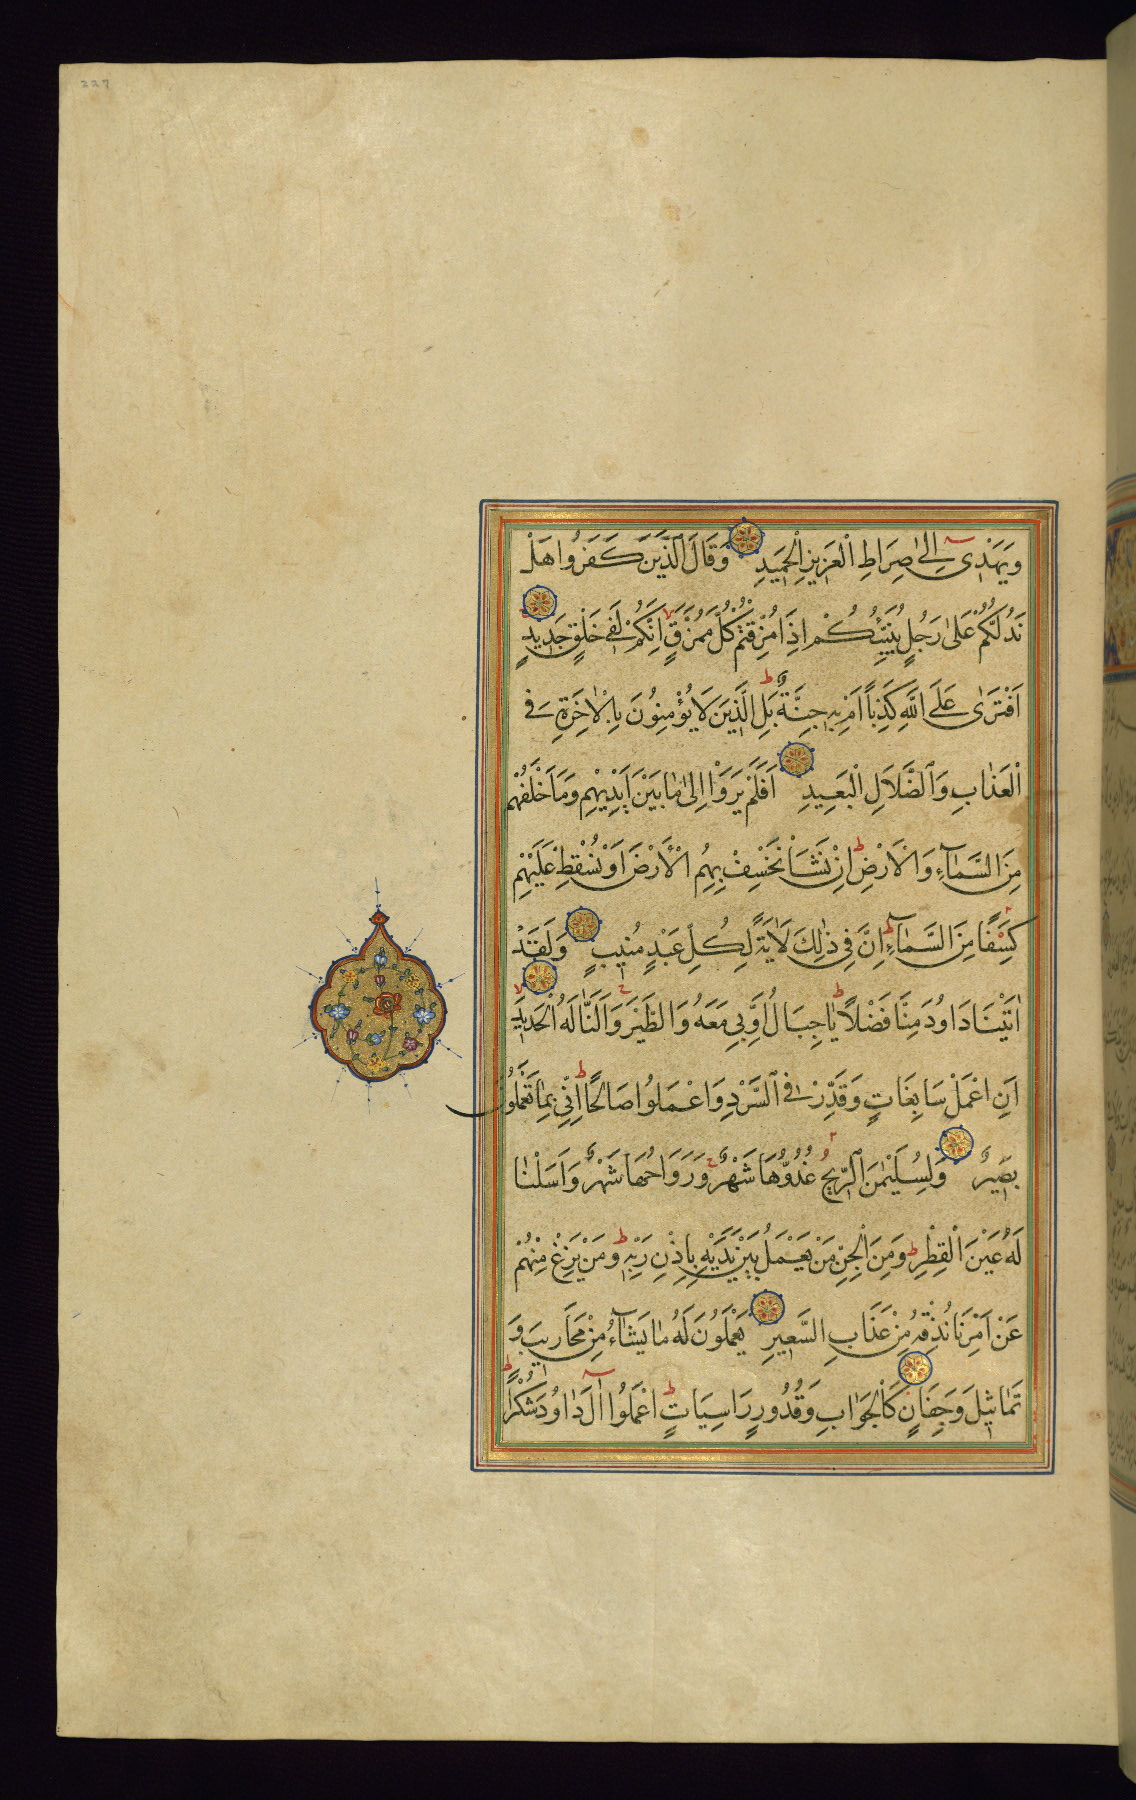 وَيَهْدِى اِلٰى صِرَاطِ الْعَزِيزِ الْحَمِيدِ وَقَالَ الَّذِينَ كَفَرُوا هَلْ
نَدُلُّكُمْ عَلٰى رَجُلٍ يُنَبِّئُكُمْ اِذَا مُزِّقْتُمْ كُلَّ مُمَزَّقٍ اِنَّكُمْ لَفِى خَلْقٍ جَدِيدٍ
اَفْتَرٰى عَلَى اللّٰهِ كَذِبًا اَمْ بِهِ جِنَّةٌ بَلِ الَّذِينَ لَا يُؤْمِنُونَ بِالْاٰخِرَةِ فِى
الْعَذَابِ وَالضَّلَالِ الْبَعِيدِ اَفَلَمْ يَرَوْا اِلٰى مَا بَيْنَ اَيْدِيهِمْ وَمَا خَلْفَهُمْ
مِنَ السَّمَآءِ وَالْاَرْضِ اِنْ نَشَاْ نَخْسِفْ بِهِمُ الْاَرْضَ اَوْ نُسْقِطْ عَلَيْهِمْ
كِسَفًا مِنَ السَّمَآءِ اِنَّ فِى ذٰلِكَ لَاٰيَةً لِكُلِّ عَبْدٍ مُنِيبٍ وَلَقَدْ
اٰتَيْنَا دَاوُدَ مِنَّا فَضْلًا يَا جِبَالُ اَوِّبِى مَعَهُ وَالطَّيْرَ وَاَلَنَّا لَهُ الْحَدِيدَ
اَنِ اعْمَلْ سَابِغَاتٍ وَقَدِّرْ فِى السَّرْدِ وَاعْمَلُوا صَالِحًا اِنِّى بِمَا تَعْمَلُونَ
بَصِيرٌ وَلِسُلَيْمٰنَ الرِّيحَ غُدُوُّهَا شَهْرٌ وَرَوَاحُهَا شَهْرٌ وَاَسَلْنَا
لَهُ عَيْنَ الْقِطْرِ وَمِنَ الْجِنِّ مَنْ يَعْمَلُ بَيْنَ يَدَيْهِ بِاِذْنِ رَبِّهِ وَمَنْ يَزِغْ مِنْهُمْ
عَنْ اَمْرِنَا نُذِقْهُ مِنْ عَذَابِ السَّعِيرِ يَعْمَلُونَ لَهُ مَا يَشَآءُ مِنْ مَحَارِيبَ وَ
تَمَاثِيلَ وَجِفَانٍ كَالْجَوَابِ وَقُدُورٍ رَاسِيَاتٍ اعْمَلُوا اٰلَ دَاوُدَ شُكْرًا